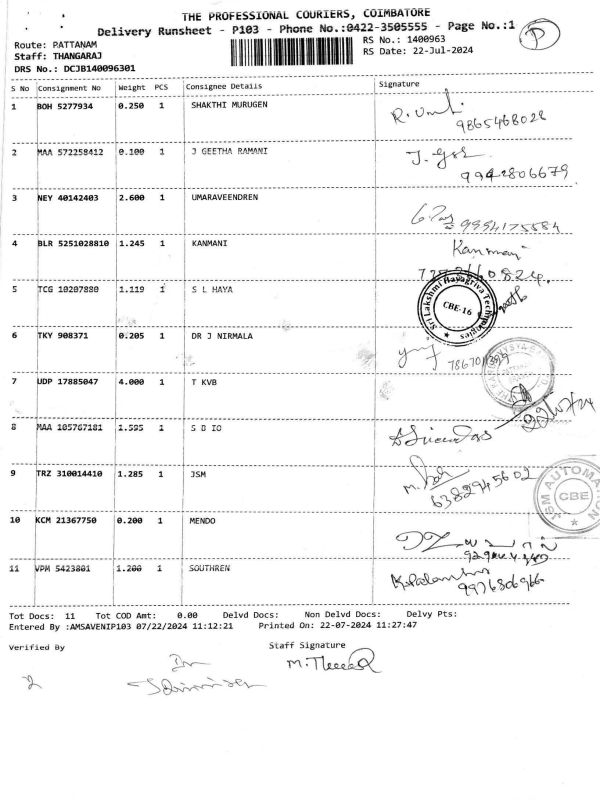 THE PROFESSIONAL COURIERS, COIMBATORE
Delivery Runsheet - P103 - Phone No.:0422-3505555 - Page No.:1
P
Route: PATTANAM
RS No.: 1400963
Staff: THANGARAJ
RS Date: 22-Jul-2024
DRS No.: DCJB140096301
S No Consignment No Weight PCS Consignee Details Signature
1 BOH 5277934 0.250 1 SHAKTHI MURUGEN
9865468028
2 MAA 572258412 0.100 1 J GEETHA RAMANI
9942806679
3 NEY 40142403 2.600 1 UMARAVEENDREN
9994175584
4 BLR 5251028810 1.245 1 KANMANI Kanmani
5 TCG 10207880 1.119 1 S L HAYA
Sri Lakshmi Hayagriva Technologies
CBE-16
6 TKY 908371 0.205 1 DR J NIRMALA
7 UDP 17885047 4.000 1 T KVB
22/07/24
8 MAA 105767181 1.595 1 S D IO
9 TRZ 310014410 1.285 1 JSM
6382945602
JSM AUTOMATION
CBE
10 KCM 21367750 0.200 1 MENDO
11 VPM 5423801 1.200 1 SOUTHREN
9976806966
Tot Docs: 11 Tot COD Amt: 0.00 Delvd Docs: Non Delvd Docs: Delvy Pts:
Entered By :AMSAVENIP103 07/22/2024 11:12:21 Printed On: 22-07-2024 11:27:47
Verified By Staff Signature